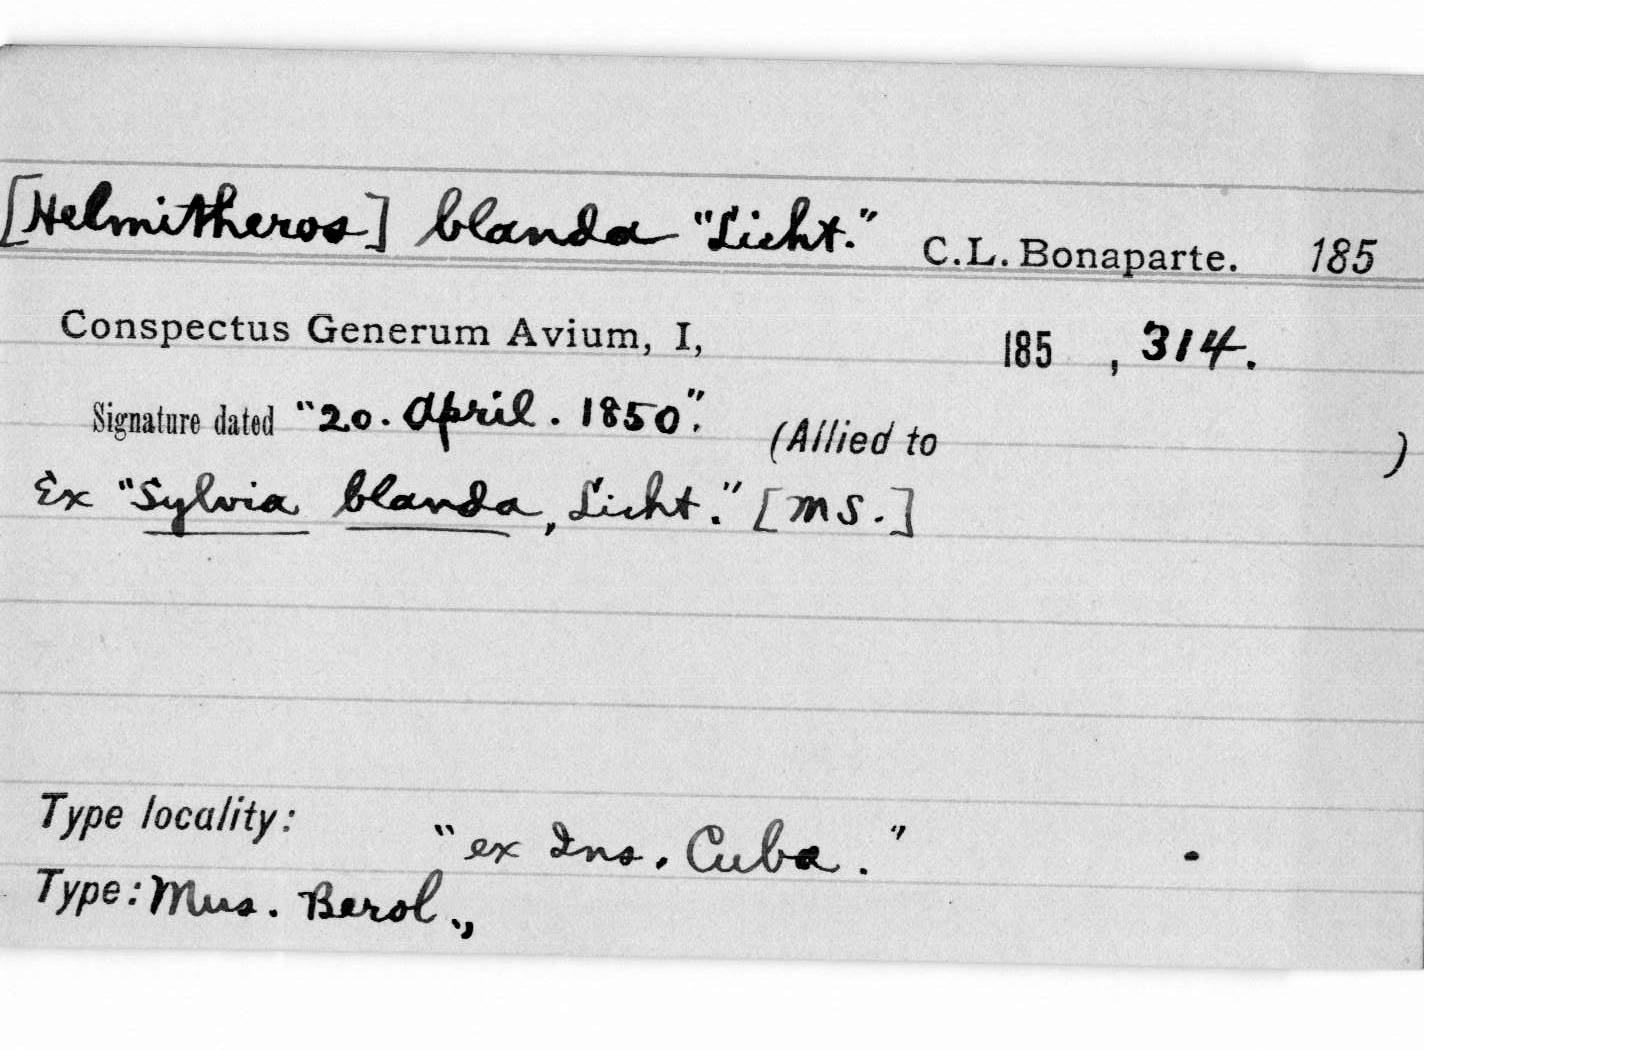 [Helmitheros] blanda "Licht." C.L. Bonaparte. 185
Conspectus Generum Avium, I, 185 , 314.
Signature dated "20. April. 1850". (Allied to )
Ex "Sylvia blanda, Licht." [MS.]
Type locality: "ex Ins. Cuba."
Type: Mus. Berol.,